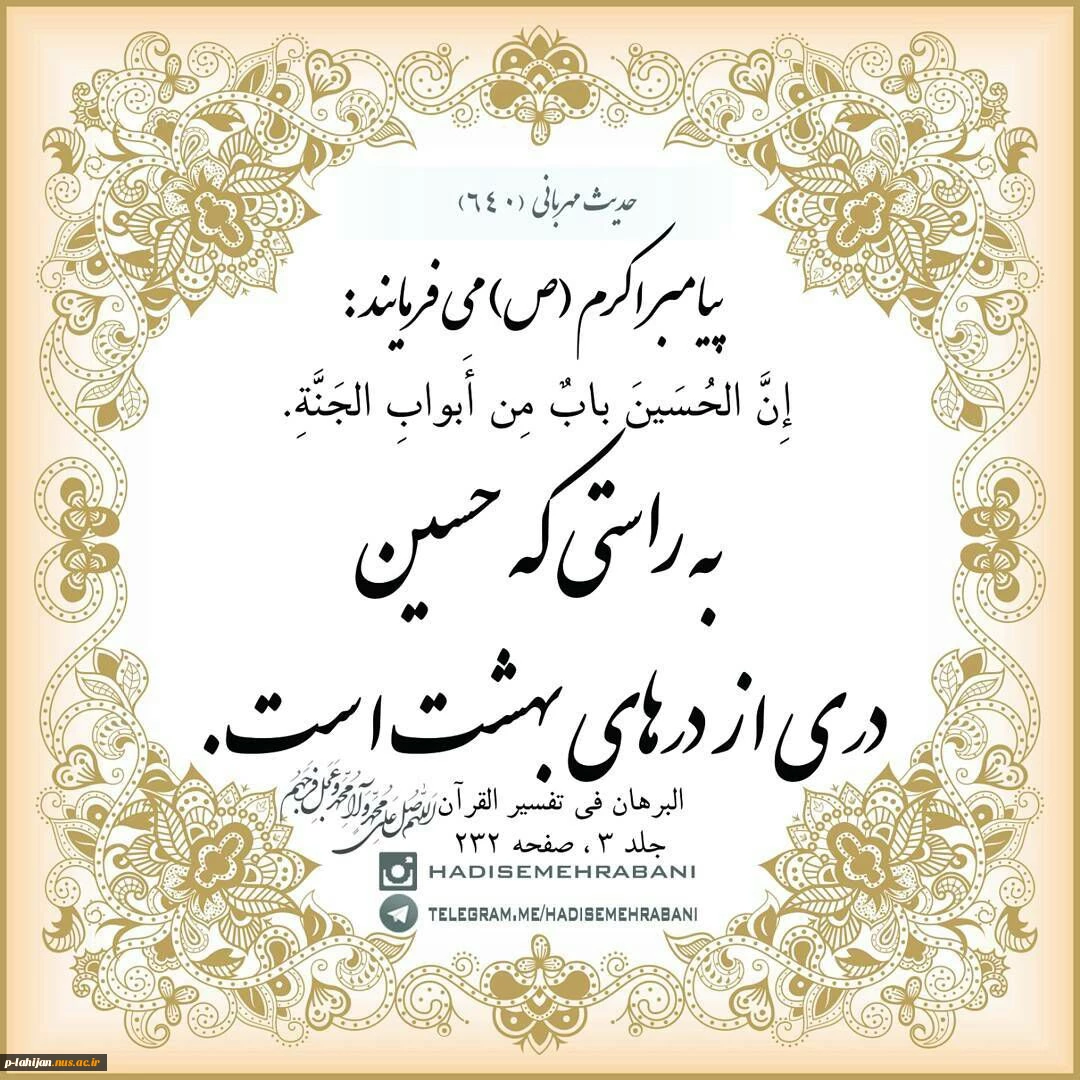 حدیث مهربانی (٦٤٠)
پیامبر اکرم (ص) می فرمایند:
إِنَّ الحُسَینَ بابٌ مِن أَبوابِ الجَنَّةِ.
به راستی که حسین
دری از درهای بهشت است.
البرهان فی تفسیر القرآن
اللهم صل علی محمد و آل محمد و عجل فرجهم
جلد ۳، صفحه ۲۳۲
HADISEMEHRABANI
TELEGRAM.ME/HADISEMEHRABANI
p-lahijan.nus.ac.ir